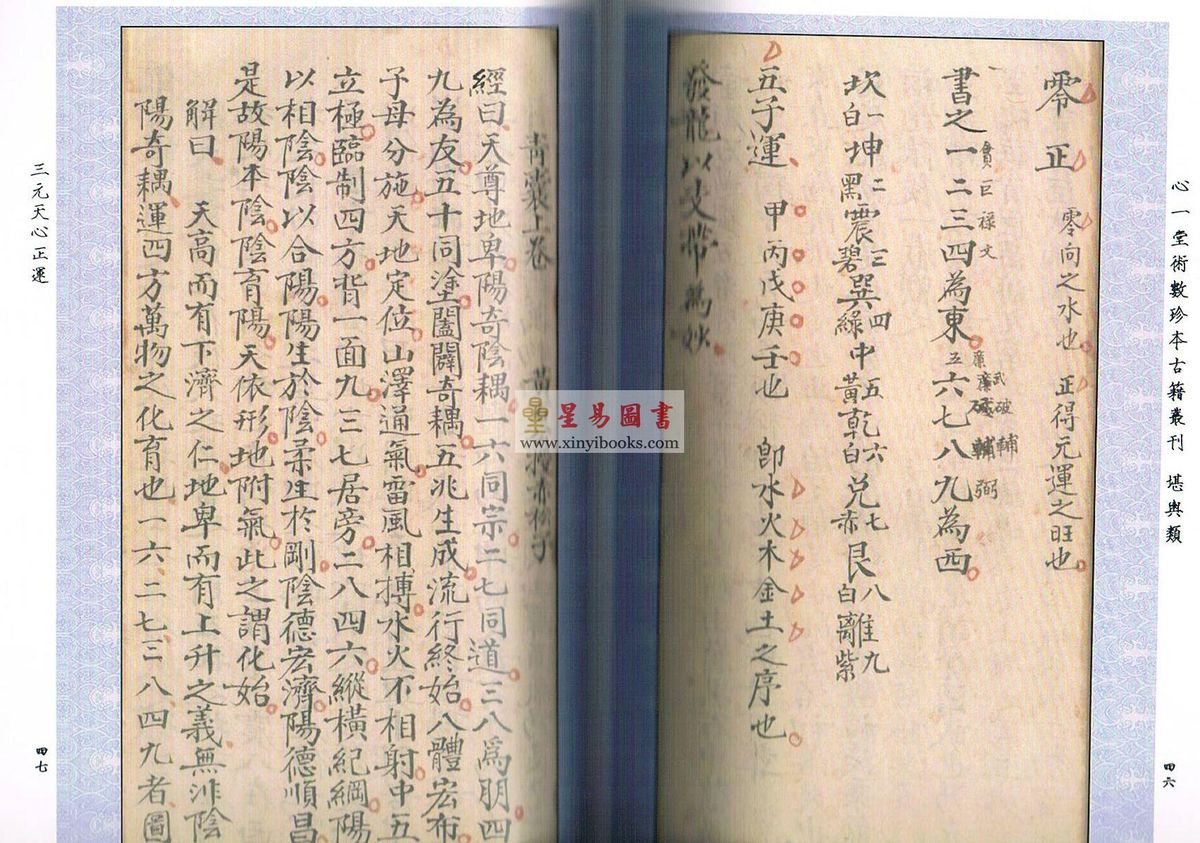 心一堂術數珍本古籍叢刊 堪輿類
四六
零正 零向之水也 正得元運之旺也
貪巨祿文
書之一二三四為東五六七八九為西
廉武破輔弼
坎一白坤二黑震三碧巽四綠中五黃乾六白兌七赤艮八白離九紫
五子運 甲丙戊庚壬也 卽水火木金土之序也
發龍以支帶為妙
青囊上卷 黃
經曰天尊地卑陽奇陰耦一六同宗二七同道三八為朋四
九為友五十同塗闔闢奇耦五兆生成流行終始八體宏布
子母分施天地定位山澤通氣雷風相摶水火不相射中五
立極臨制四方背一面九三七居旁二八四六縱橫紀綱陽
以相陰陰以合陽陽生於陰柔生於剛陰德宏濟陽德順昌
是故陽本陰陰育陽天依形地附氣此之謂化始
解曰 天高而有下濟之仁地卑而有上升之義無非陰
陽奇耦運四方萬物之化育也一六二七三八四九者圖
三元天心正運
四七
星易圖書
www.xinyibooks.com